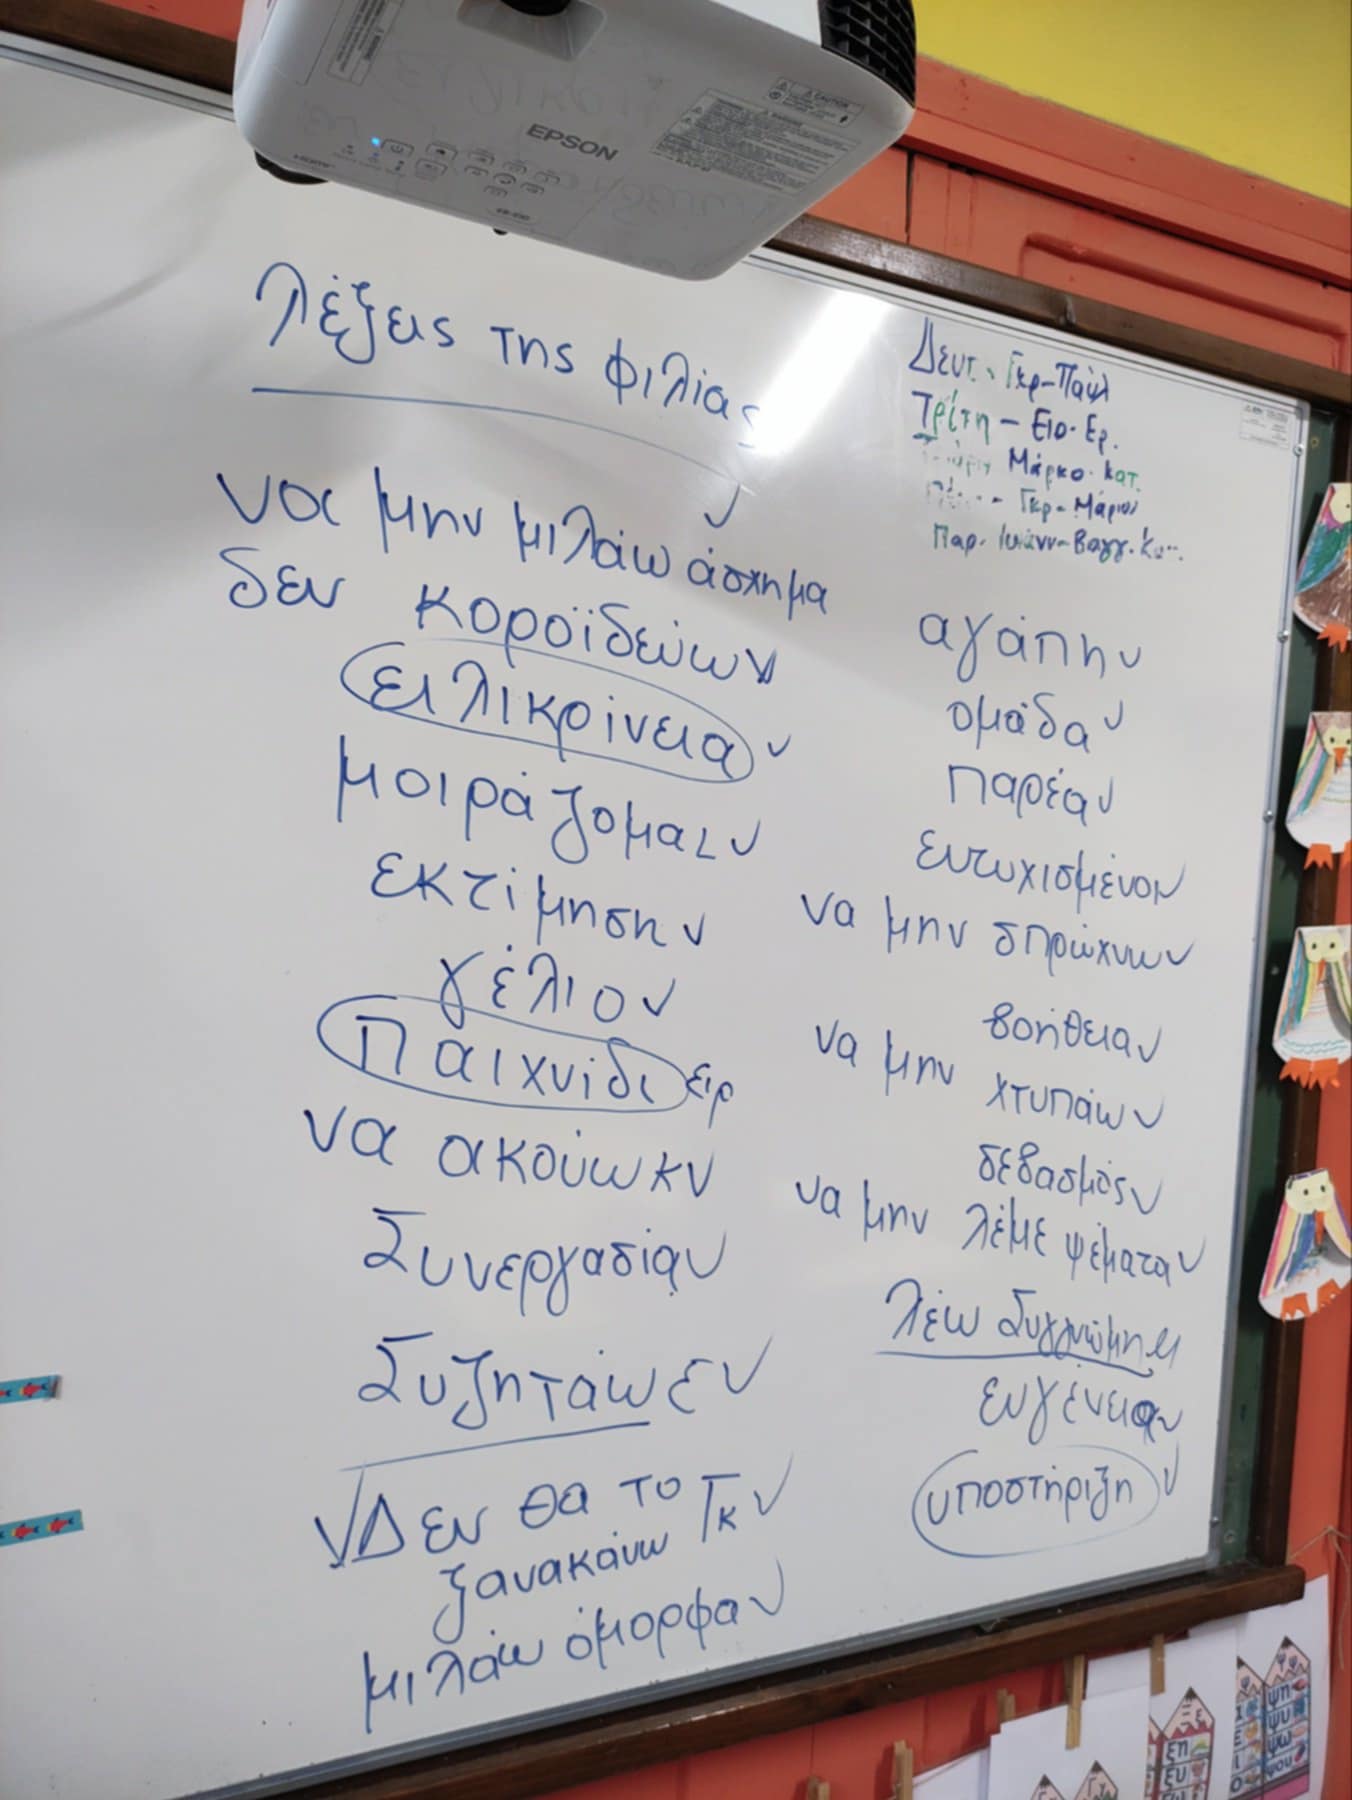 EPSON
CAUTION
λέξεις της φιλίας
να μην μιλάω άσχημα
δεν κοροϊδεύω
ειλικρίνεια
μοιράζομαι
εκτίμηση
γέλιο
Παιχνίδι ειρ
να ακούω κ
Συνεργασία
Συζητάω ε
Δεν θα το
ξανακάνω Γκ
μιλάω όμορφα
Δευτ. Γκρ-Παύλ
Τρίτη - Ειρ. Ερ.
Μάρκο. Κατ.
Γκρ - Μάριος
Παρ. Ιωάνν - Βαγγ.
αγάπη
ομάδα
παρέα
ευτυχισμένο
να μην σπρώχνω
βοήθεια
να μην χτυπάω
σεβασμός
να μην λέμε ψέματα
λέω συγγνώμη
ευγένεια
υποστήριξη
ξη
ξυ
ψη
ψυ
ψω
ψου